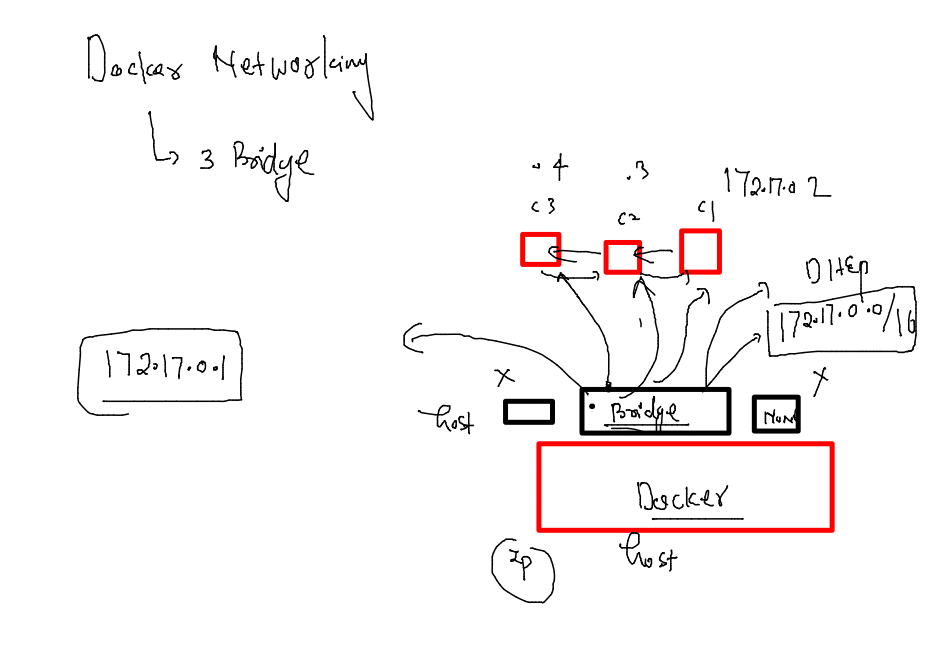 Docker Networking
3 Bridge
.4 .3 172.17.0 2
c3 c2 c1
DHCP
172.17.0.0/16
172.17.0.1
x x
host Bridge NON
Docker
host
IP